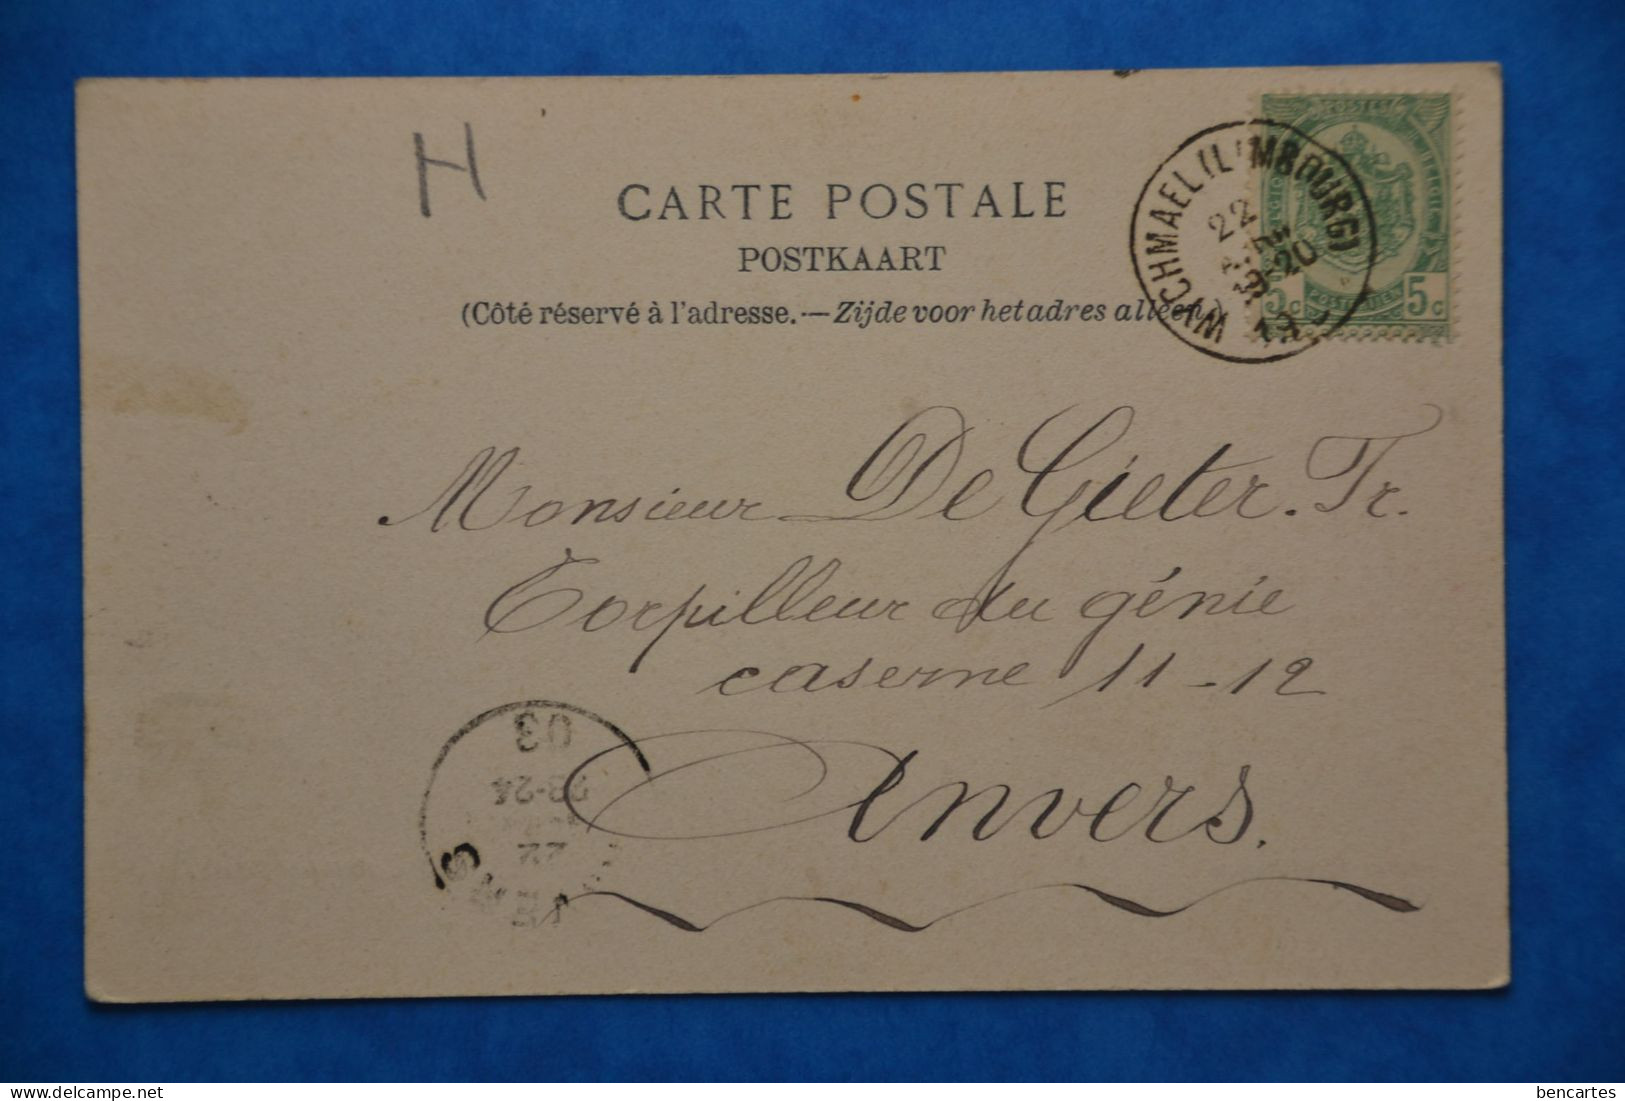 H
CARTE POSTALE
POSTKAART
(Côté réservé à l'adresse. — Zijde voor het adres alleen.)
WYCHMAEL (LIMBOURG)
22
19
POSTES
5c POSTERIJEN 5c
Monsieur De Gieter. Tr.
Torpilleur du génie
caserne 11-12
Anvers.
03
23-24
22
bencartes